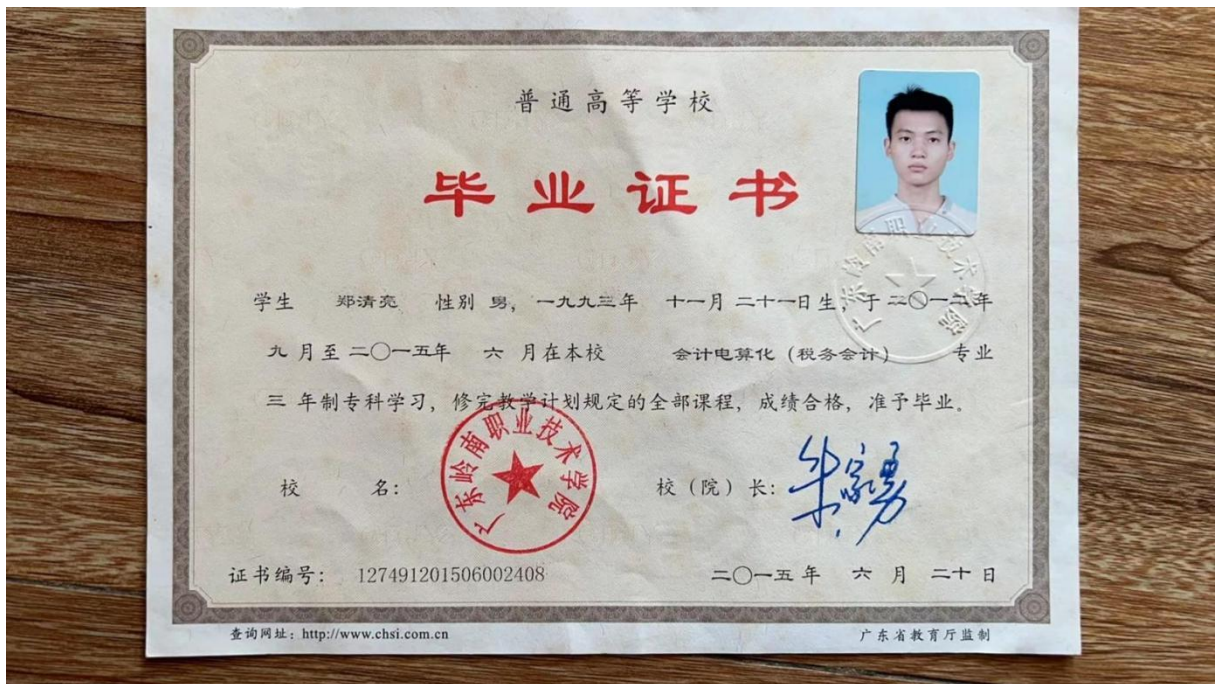 普通高等学校
毕业证书
学生 郑清亮 性别 男，一九九三年 十一月 二十一日生，于二〇一二年
九 月至 二〇一五年 六 月在本校 会计电算化（税务会计） 专业
三 年制专科学习，修完教学计划规定的全部课程，成绩合格，准予毕业。
校 名：
广东岭南职业技术学院
校（院）长：
证书编号： 127491201506002408
二〇一五年 六 月 二十日
查询网址：http://www.chsi.com.cn
广东省教育厅监制
广东岭南职业技术学院